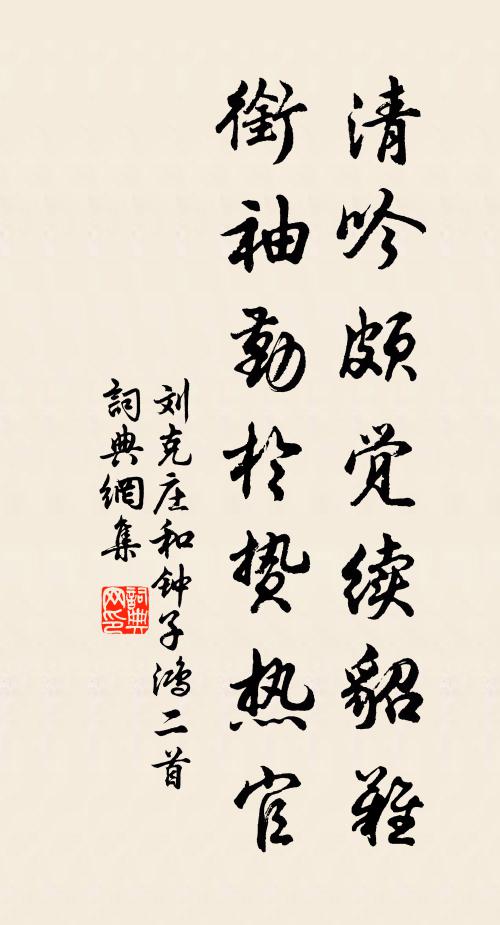 清吟頗觉续貂难
衔袖勤於贽热官
刘克庄和钟子鸿二首
詞典網集
詞典网印